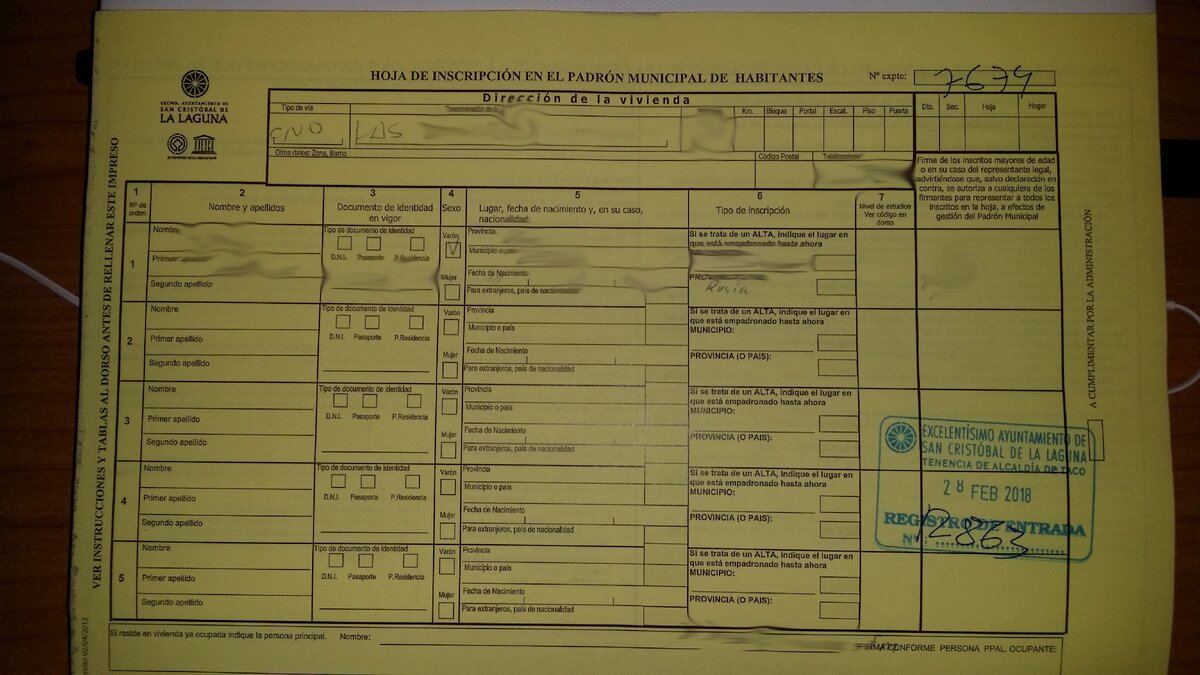 HOJA DE INSCRIPCIÓN EN EL PADRÓN MUNICIPAL DE HABITANTES
Nº expte: 7674
EXCMO. AYUNTAMIENTO DE
SAN CRISTÓBAL DE
LA LAGUNA
PATRIMONIO DE LA HUMANIDAD
Dirección de la vivienda
Tipo de vía Km. Bloque Portal Escal. Piso Puerta Dto. Sec. Hoja Hogar
CNO LAS
Otros datos: Zona, Barrio Código Postal
Firma de los inscritos mayores de edad
o en su caso del representante legal,
advirtiéndose que, salvo declaración en
contra, se autoriza a cualquiera de los
firmantes para representar a todos los
inscritos en la hoja, a efectos de
gestión del Padrón Municipal
1 2 3 4 5 6 7
Nº de orden
Nombre y apellidos
Documento de identidad
en vigor
Sexo
Lugar, fecha de nacimiento y, en su caso,
nacionalidad
Tipo de inscripción
Nivel de estudios
Ver código en
dorso
1
Nombre
Primer
Segundo apellido
Tipo de documento de identidad
D.N.I. Pasaporte P.Residencia
Varón
V
Mujer
Provincia
Municipio o
Fecha de Nacimiento
Para extranjeros, país de nacionalidad
Si se trata de un ALTA, indique el lugar en
que está empadronado hasta ahora
Rusia
2
Nombre
Primer apellido
Segundo apellido
Tipo de documento de identidad
D.N.I. Pasaporte P.Residencia
Varón
Mujer
Provincia
Municipio o país
Fecha de Nacimiento
Para extranjeros, país de nacionalidad
Si se trata de un ALTA, indique el lugar en
que está empadronado hasta ahora
MUNICIPIO:
PROVINCIA (O PAIS):
3
Nombre
Primer apellido
Segundo apellido
Tipo de documento de identidad
D.N.I. Pasaporte P.Residencia
Varón
Mujer
Provincia
Municipio o país
Fecha de Nacimiento
Para extranjeros, país de nacionalidad
Si se trata de un ALTA, indique el lugar en
que está empadronado hasta ahora
MUNICIPIO:
PROVINCIA (O PAIS):
4
Nombre
Primer apellido
Segundo apellido
Tipo de documento de identidad
D.N.I. Pasaporte P.Residencia
Varón
Mujer
Provincia
Municipio o país
Fecha de Nacimiento
Para extranjeros, país de nacionalidad
Si se trata de un ALTA, indique el lugar en
que está empadronado hasta ahora
MUNICIPIO:
PROVINCIA (O PAIS):
5
Nombre
Primer apellido
Segundo apellido
Tipo de documento de identidad
D.N.I. Pasaporte P.Residencia
Varón
Mujer
Provincia
Municipio o país
Fecha de Nacimiento
Para extranjeros, país de nacionalidad
Si se trata de un ALTA, indique el lugar en
que está empadronado hasta ahora
MUNICIPIO:
PROVINCIA (O PAIS):
EXCELENTÍSIMO AYUNTAMIENTO DE
SAN CRISTÓBAL DE LA LAGUNA
TENENCIA DE ALCALDÍA DE TACO
28 FEB 2018
REGISTRO DE ENTRADA
Nº 12863
Si reside en vivienda ya ocupada indique la persona principal. Nombre:
FIRMA CONFORME PERSONA PPAL. OCUPANTE:
VER INSTRUCCIONES Y TABLAS AL DORSO ANTES DE RELLENAR ESTE IMPRESO
A CUMPLIMENTAR POR LA ADMINISTRACIÓN
02/04/2012